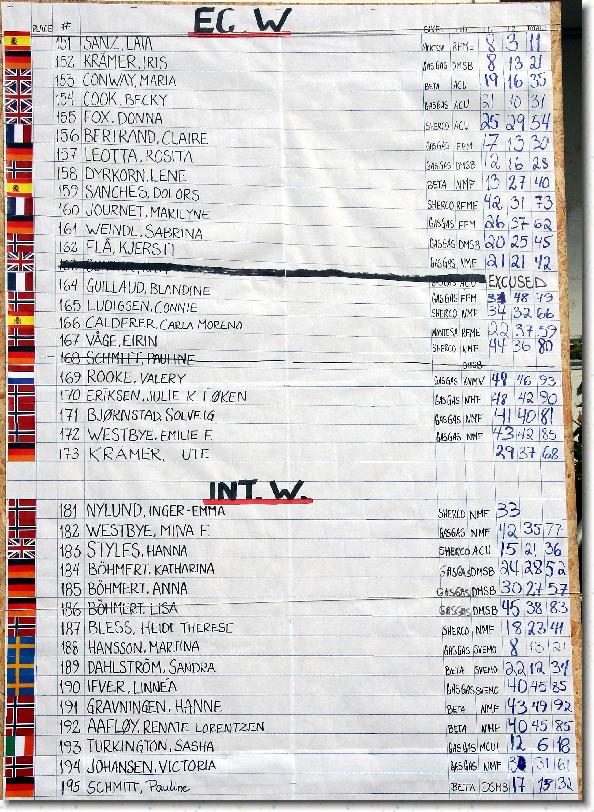 EC. W
PLACE #
151 SANZ, LAIA MONTESA RFME 8 3 11
152 KRÄMER, IRIS GASGAS DMSB 8 13 21
153 CONWAY, MARIA BETA ACU 19 16 35
154 COOK, BECKY GASGAS ACU 21 10 31
155 FOX, DONNA SHERCO ACU 25 29 54
156 BERTRAND, CLAIRE GASGAS FFM 17 13 30
157 LEOTTA, ROSITA GASGAS DMSB 12 16 28
158 DYRKORN, LENE BETA NMF 13 27 40
159 SANCHES, DOLORS SHERCO RFME 42 31 73
160 JOURNET, MARILYNE GASGAS FFM 26 37 62
161 WEINDL, SABRINA GASGAS DMSB 20 25 45
162 FLÅ, KJERSTI GASGAS NMF 21 21 42
ACU EXCUSED
164 GUILLAUD, BLANDINE GASGAS FFM 48 79
165 LUDIGSEN, CONNIE SHERCO NMF 34 32 66
166 CALDERER, CARLA MORENO MONTESA RFME 22 37 59
167 VÅGE, EIRIN SHERCO NMF 44 36 80
168 SCHMITT, PAULINE DMSB
169 ROOKE, VALERY GASGAS KNMV 46 93
170 ERIKSEN, JULIE K. LØKEN GASGAS NMF 48 42 90
171 BJØRNSTAD, SOLVEIG GASGAS NMF 41 40 81
172 WESTBYE, EMILIE F. GASGAS NMF 43 42 85
173 KRÄMER, UTE 29 37 68
INT. W.
181 NYLUND, INGER-EMMA SHERCO NMF 33
182 WESTBYE, MINA F. GASGAS NMF 42 35 77
183 STYLES, HANNA SHERCO ACU 15 21 36
184 BÖHMERT, KATHARINA GASGAS DMSB 24 28 52
185 BÖHMERT, ANNA GASGAS DMSB 30 27 57
186 BÖHMERT, LISA GASGAS DMSB 45 38 83
187 BLESS, HEIDI THERESE SHERCO NMF 18 23 41
188 HANSSON, MARTINA GASGAS SVEMO 8 13 21
189 DAHLSTRÖM, SANDRA BETA SVEMO 22 12 34
190 IFVER, LINNÉA GASGAS SVEMO 40 45 85
191 GRAVNINGEN, HANNE BETA NMF 43 49 92
192 AAFLØY, RENATE LORENTZEN BETA NMF 40 45 85
193 TURKINGTON, SASHA GASGAS MCUI 12 6 18
194 JOHANSEN, VICTORIA GASGAS NMF 31 61
195 SCHMITT, Pauline BETA DSMB 17 15 32